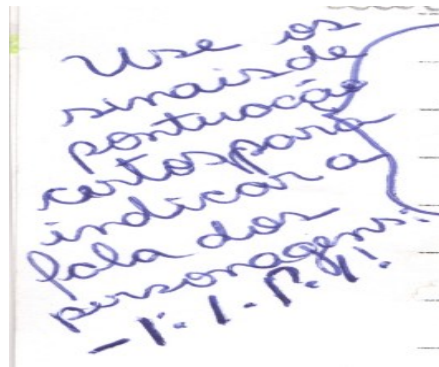 Use os
sinais de
pontuação
certos para
indicar a
fala dos
personagens: